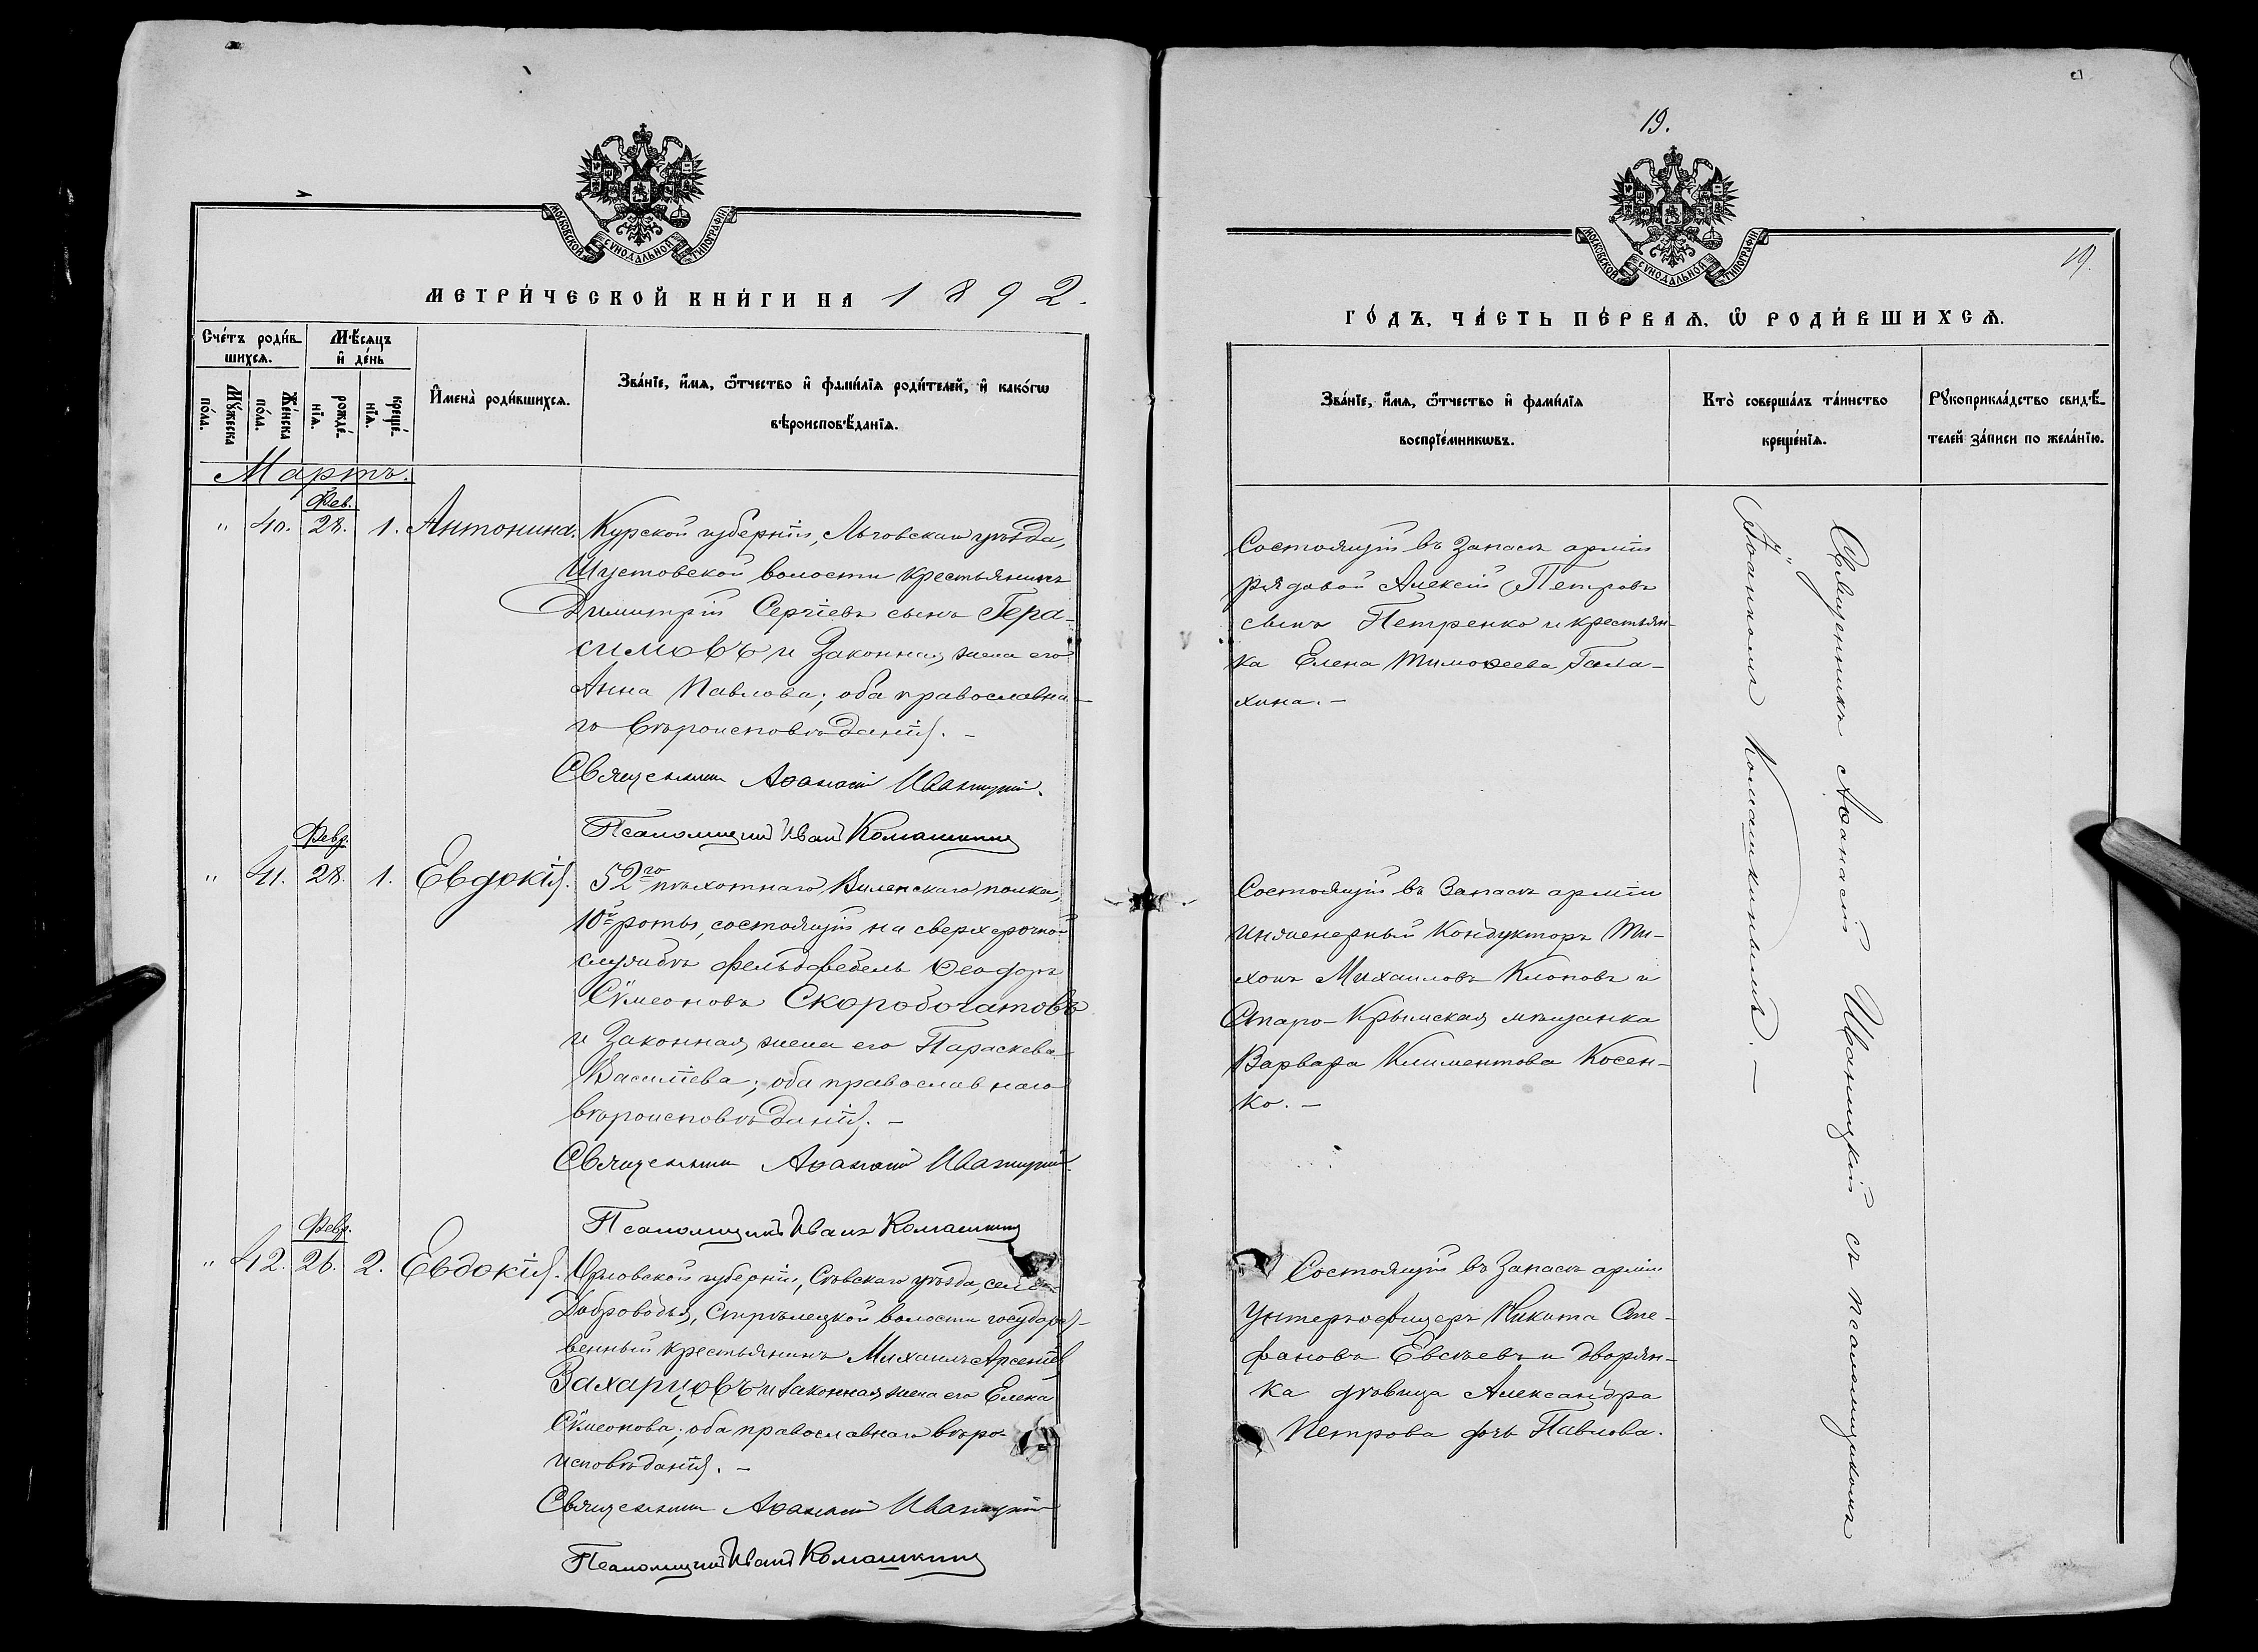 МОСКОВСКОЙ СѴНОДАЛЬНОЙ ТИПОГРАФІИ
МЕТРИ́ЧЕСКОЙ КНИ́ГИ НА 1892.
Сче́тъ роди́в-
шихся.
Мѣ́сяцъ
и҆ де́нь
Мꙋ́жеска
по́ла.
Же́нска
по́ла.
рожде́-
нїя.
креще́-
нїя.
И҆мена̀ роди́вшихся.
Зва́нїе, и҆́мя, ѻ҆́тчество и҆ фами́лїя роди́телей, и҆ како́гѡ
вѣроисповѣ́данїя.
Мартъ.
Фев.
" 40. 28. 1. Антонина. Курской губерніи, Льговскаго уѣзда,
Шустовской волости крестьянинъ
Димитрій Сергіевъ сынъ Гера-
симовъ и законная жена его
Анна Павлова; оба православна-
го вѣроисповѣданія. -
Священникъ Аѳанасій Иваницкій.
Псаломщикъ Иванъ Комашкинъ
Февр.
" 41. 28. 1. Евдокія. 52го пѣхотнаго Виленскаго полка,
10й роты, состоящій на сверхсрочной
службѣ фельдфебель Ѳеодоръ
Сѵмеоновъ Скоробогатовъ
и законная жена его Параскева
Василіева; оба православнаго
вѣроисповѣданія. -
Священникъ Аѳанасій Иваницкій.
Псаломщикъ Иванъ Комашкинъ
Февр.
" 42. 26. 2. Евдокія. Орловской губерніи, Сѣвскаго уѣзда, села
Доброводья, Стрѣлецкой волости государст-
венный крестьянинъ Михаилъ Арсеніевъ
Захарцовъ и законная жена его Елена
Сѵмеонова; оба православнаго вѣро-
исповѣданія. -
Священникъ Аѳанасій Иваницкій
Псаломщикъ Иванъ Комашкинъ
19.
МОСКОВСКОЙ СѴНОДАЛЬНОЙ ТИПОГРАФІИ
19.
ГО́ДЪ, ЧА́СТЬ ПЕ́РВАЯ, Ѡ҆ РОДИ́ВШИХСЯ.
Зва́нїе, и҆́мя, ѻ҆́тчество и҆ фами́лїя
воспрїе́мникѡвъ.
Кто̀ соверша́лъ та́инство
креще́нїя.
Рꙋкоприкла́дство свидѣ́-
телей за́писи по жела́нїю.
Состоящій въ запасѣ арміи
рядовой Алексій Петровъ
сынъ Петренко и крестьян-
ка Елена Тимоѳеева Гала-
хина. -
Состоящій въ запасѣ арміи
инженерный кондукторъ Ти-
хонъ Михаиловъ Клоповъ и
Старо-Крымская мѣщанка
Варвара Климентова Косен-
ко. -
Состоящій въ запасѣ арміи
унтеръ-офицеръ Никита Сте-
фановъ Евсѣевъ и дворян-
ка дѣвица Александра
Петрова дочь Павлова.
Священникъ Аѳанасій Иваницкій съ псаломщикомъ
Іоанномъ Комашкинымъ. -